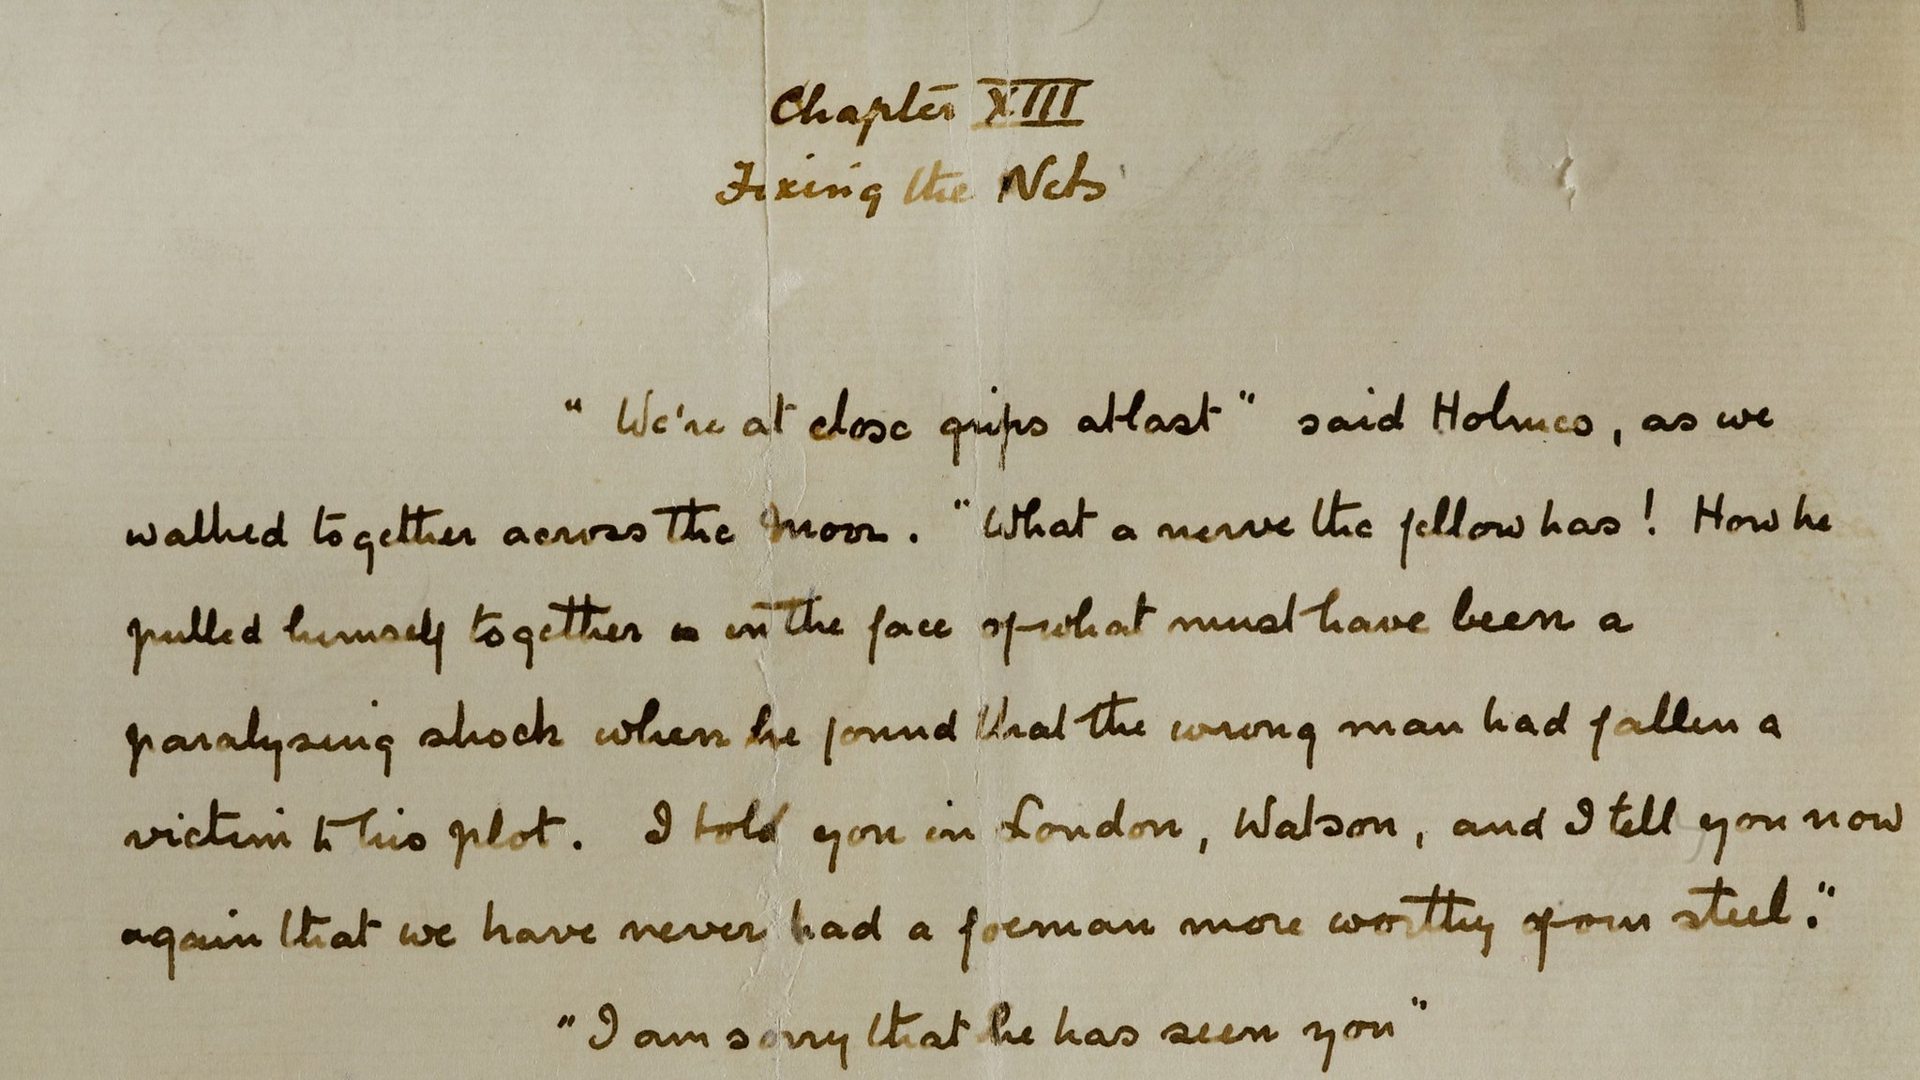 Chapter XIII
Fixing the Nets
"We're at close grips at last" said Holmes, as we
walked together across the moor. "What a nerve the fellow has! How he
pulled himself together in the face of what must have been a
paralysing shock when he found that the wrong man had fallen a
victim to his plot. I told you in London, Watson, and I tell you now
again that we have never had a foeman more worthy of our steel."
"I am sorry that he has seen you"